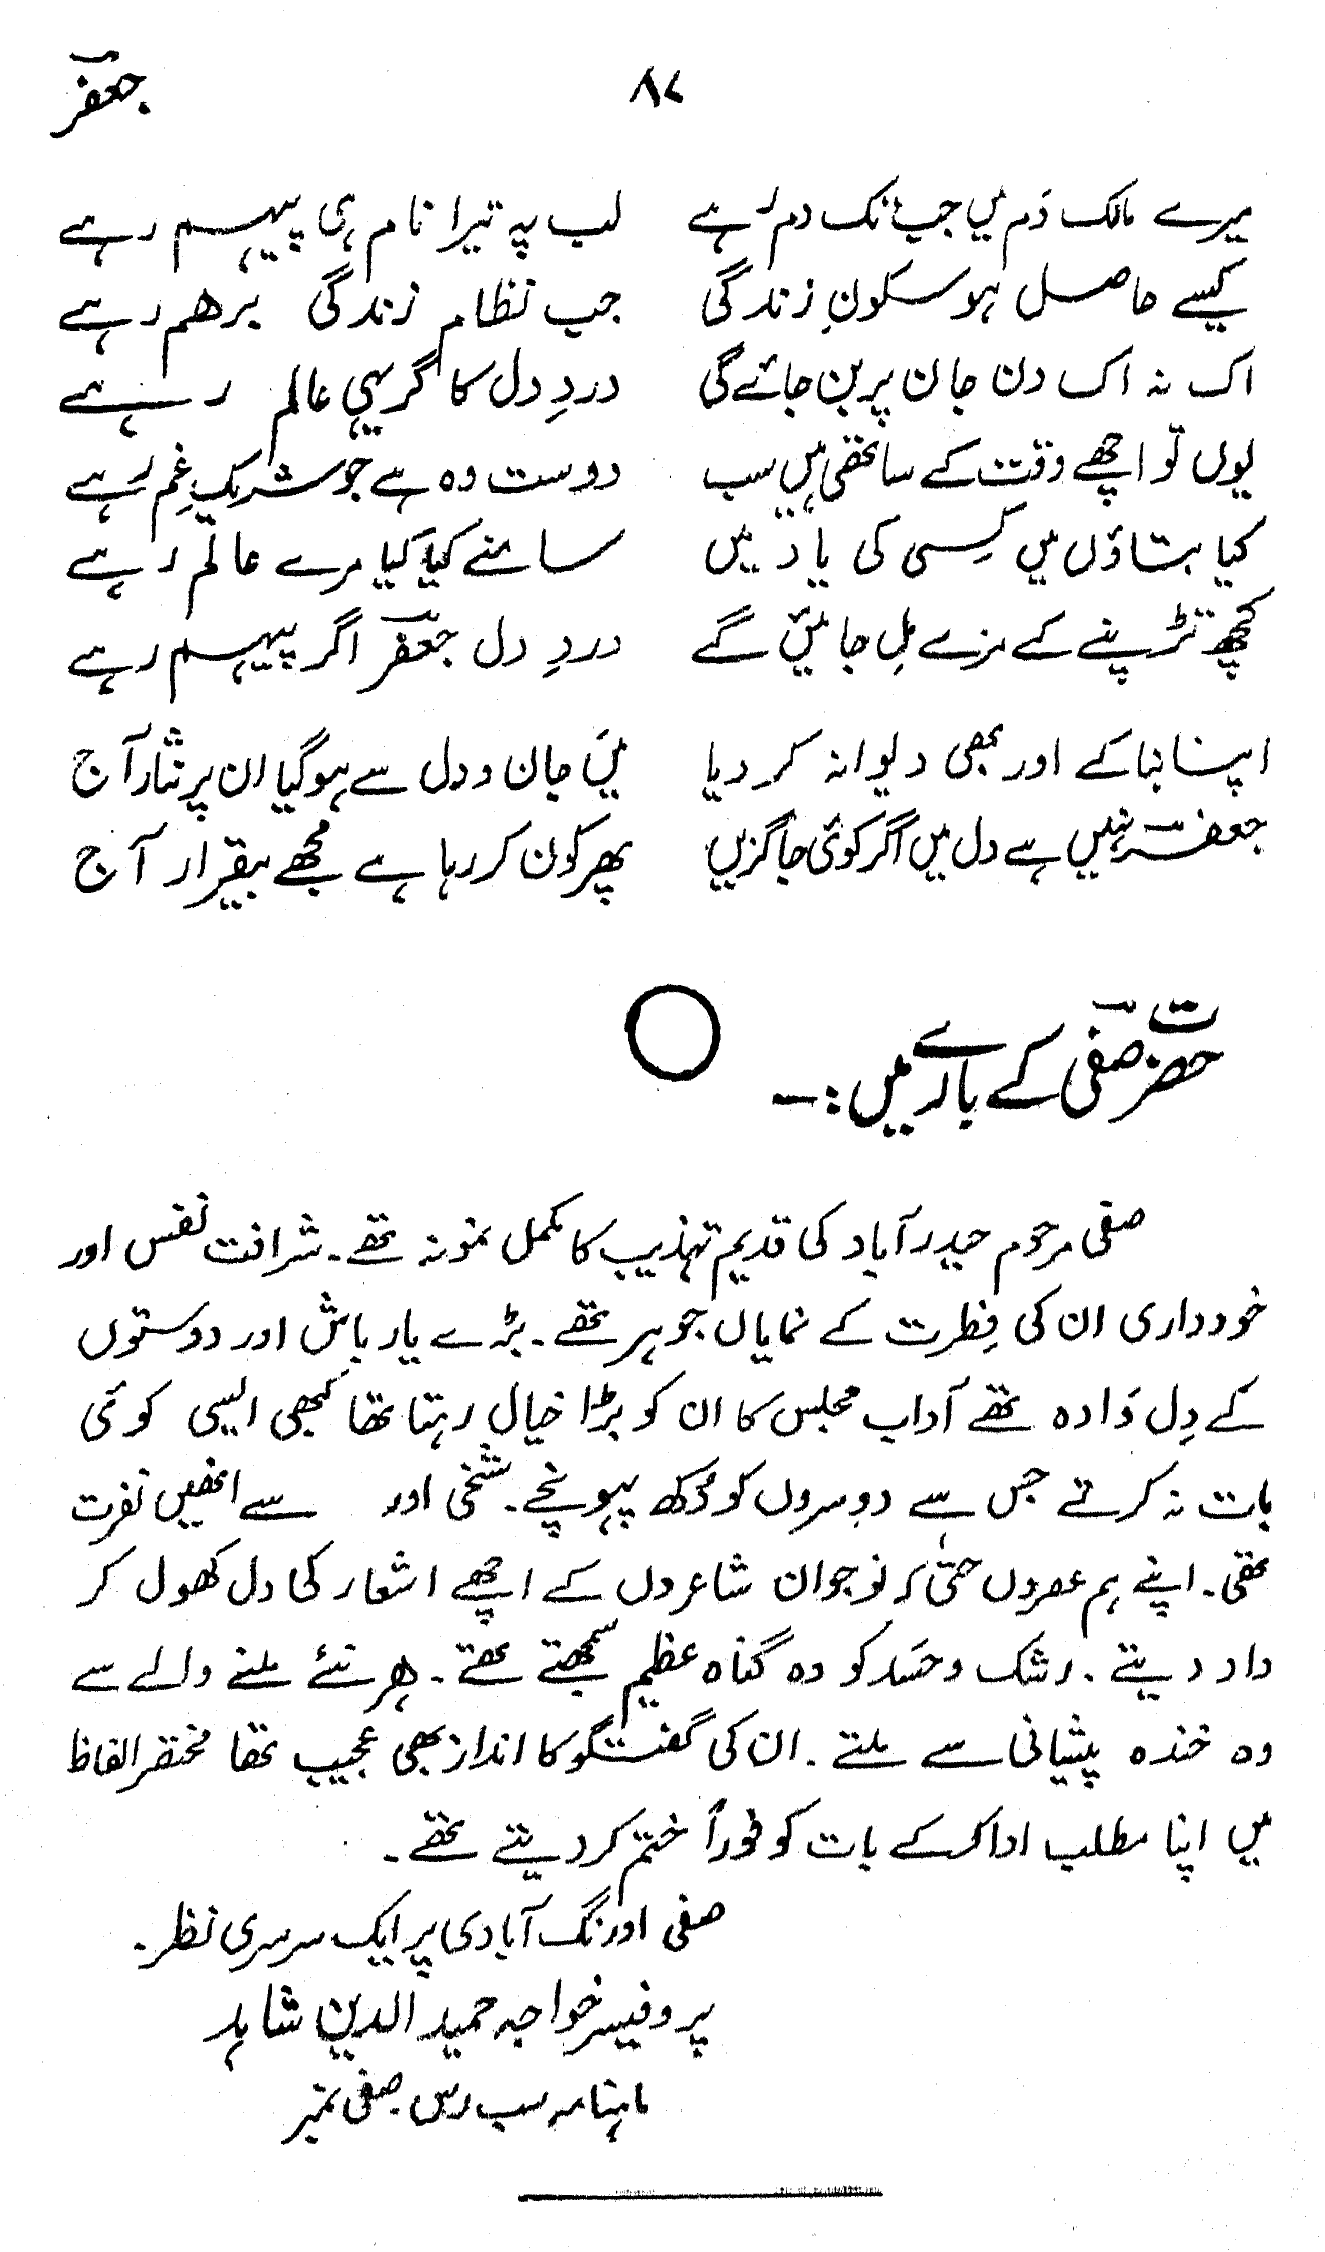 جعفرؔ
۸۷
میرے مالک دَم میں جب تک دم رہے لب پہ تیرا نام ہی پیہم رہے
کیسے حاصل ہو سکونِ زندگی جب نظامِ زندگی برھم رہے
اک نہ اک دن جان پر بن جائے گی دردِ دل کا گر یہی عالم رہے
یوں تو اچھے وقت کے ساتھی ہیں سب دوست وہ ہے جو شریکِ غم رہے
کیا بتاؤں میں کِسی کی یاد میں سامنے کیا کیا مرے عالم رہے
کچھ تڑپنے کے مزے مِل جائیں گے دردِ دل جعفرؔ اگر پیہم رہے
اپنا بنا کے اور بھی دیوانہ کر دیا میں جان و دل سے ہو گیا ان پر نثار آج
جعفرؔ نہیں ہے دل میں اگر کوئی جاگزیں پھر کون کر رہا ہے مجھے بیقرار آج
حضرت صفیؔ کے بارے میں :۔
صفی مرحوم حیدرآباد کی قدیم تہذیب کا مکمل نمونہ تھے۔ شرافت نفس اور
خودداری ان کی فِطرت کے نمایاں جوہر تھے۔ بڑے یار باش اور دوستوں
کے دِل دَادہ تھے آداب مجلس کا ان کو بڑا خیال رہتا تھا کبھی ایسی کوئی
بات نہ کرتے جس سے دوسروں کو دُکھ پہونچے۔ شیخی اور سے انھیں نفرت
تھی۔ اپنے ہم عصروں حتیٰ کہ نوجوان شاعروں کے اچھے اشعار کی دل کھول کر
داد دیتے۔ رشک و حسَد کو وہ گناہ عظیم سمجھتے تھے۔ ھر نئے ملنے والے سے
وہ خندہ پیشانی سے ملتے۔ ان کی گفتگو کا انداز بھی عجیب تھا مختصر الفاظ
میں اپنا مطلب ادا کر کے بات کو فوراً ختم کر دیتے تھے۔
صفی اورنگ آبادی پر ایک سرسری نظر۔
پروفیسر خواجہ حمید الدین شاہد
ماہنامہ سب رس۔ صفی نمبر